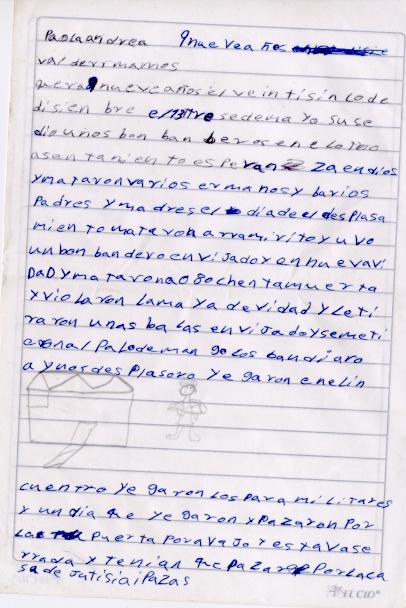 Paola andrea 9 nueve años
valderrmamos
nueve años el veintisinco de
disienbre el 13 tre se de ma yo su se
dio unos bon ban beros en el
asentamiento esperanza en dios
y mataron varios ermanos y barios
Padres y madres el dia de el desplasa
miento mataron a rramirito y uvo
un bon bandero en vijado y en nueva vi
DaD y mataron a 080chenta muerta
y violaron la ma ya de vidad y le ti
raron unas balas en vijado y se meti
eronal Palo de man go los bandiaro
a y nos des Plasoro ye garon en el in
cuentro ye garon los para militares
y un dia que ye garon y pazaron Por
la Puerta Por ava jo r estava se
rrada y tenian que pazar Por la ca
sa de jutisia i Pazas
EL CID